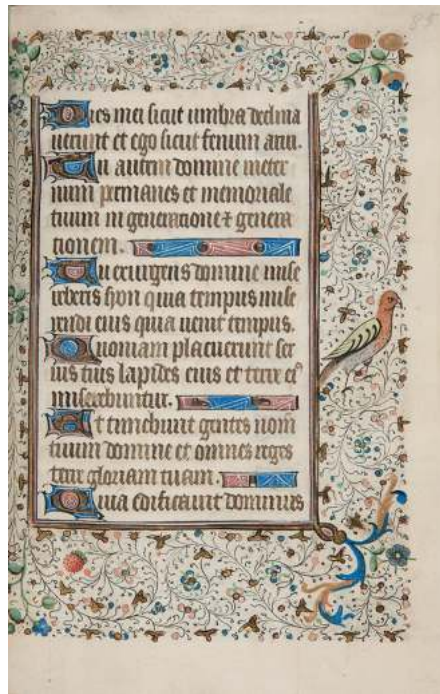 Dies mei sicut umbra declina
uerunt et ego sicut fenum arui.
Tu autem domine meter
num permanes et memoriale
tuum in generatione ⁊ genera
tionem.
Tu exurgens domine mise
reberis syon quia tempus mise
rendi eius quia uenit tempus.
Quoniam placuerunt ser
uis tuis lapides eius et terre eiꝰ
miserebuntur.
Et timebunt gentes nom
tuum domine et omnes reges
terre gloriam tuam.
Quia edificauit dominus